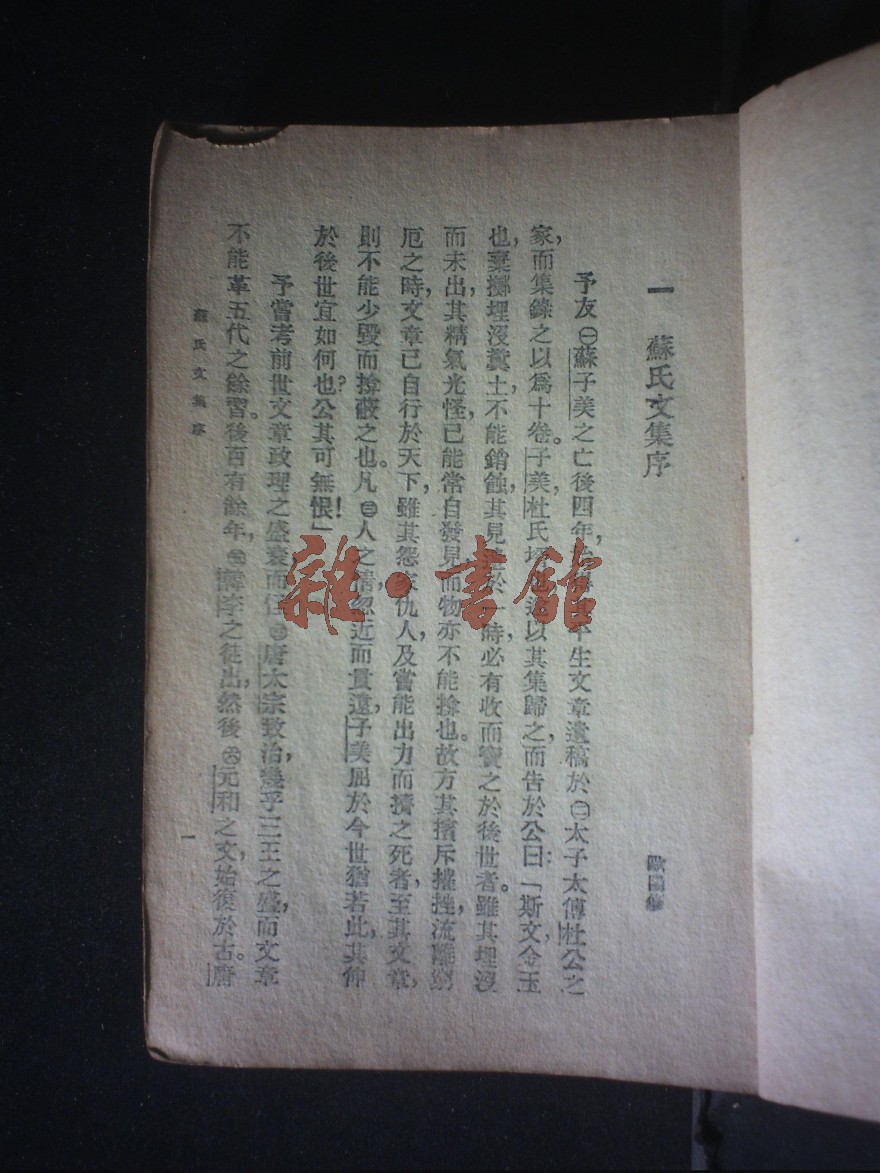 一　蘇氏文集序
歐陽修
予友㊀蘇子美之亡後四年，始得其平生文章遺稿於㊁太子太傅杜公之
家，而集錄之以爲十卷。子美，杜氏壻也，遂以其集歸之，而告於公曰：「斯文，金玉
也，棄擲埋沒糞土，不能銷蝕，其見遺於一時，必有收而寶之於後世者。雖其埋沒
而未出，其精氣光怪，已能常自發見，而物亦不能揜也。故方其擯斥摧挫，流離窮
厄之時，文章已自行於天下，雖其怨家仇人，及嘗能出力而擠之死者，至其文章，
則不能少毀而揜蔽之也。凡㊂人之情，忽近而貴遠，子美屈於今世猶若此，其伸
於後世宜如何也？公其可無恨！」
予嘗考前世文章政理之盛衰，而怪㊃唐太宗致治，幾乎三王之盛，而文章
不能革五代之餘習。後百有餘年，㊄韓李之徒出，然後㊅元和之文，始復於古。唐
蘇氏文集序
一
雜·書館